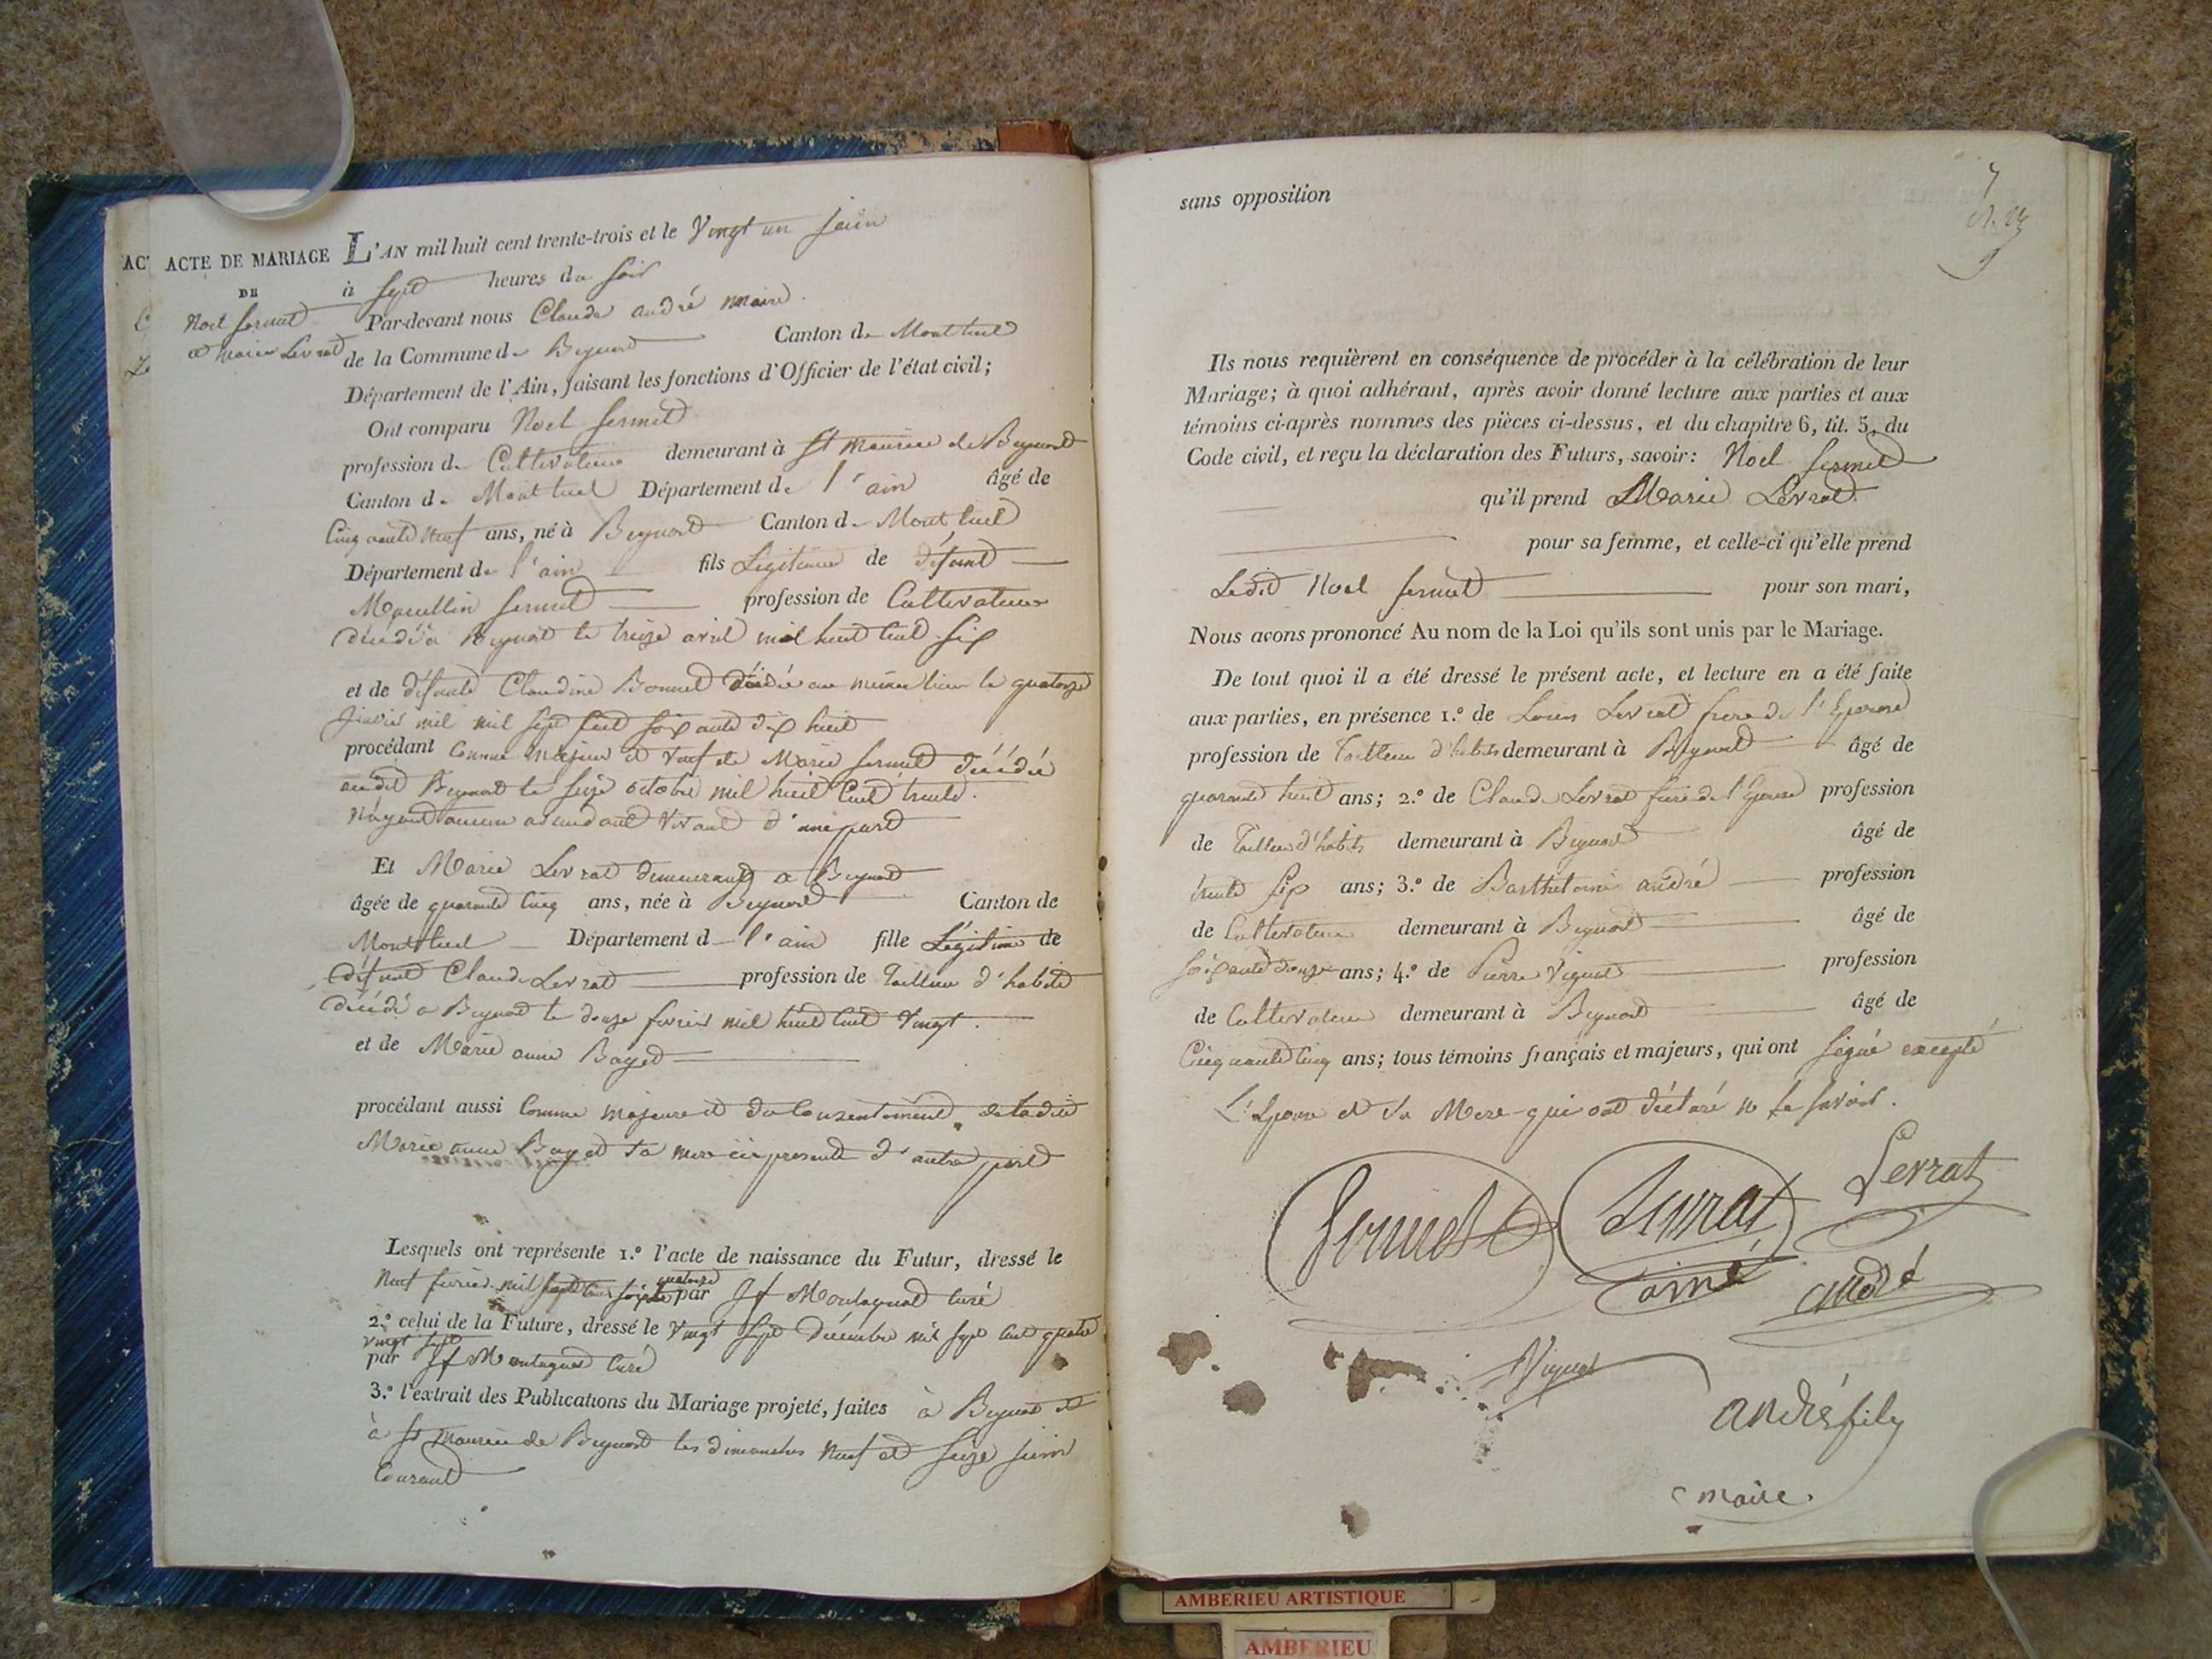 ACTE DE MARIAGE
DE
Noel fermet
et Marie Levrat
L'AN mil huit cent trente-trois et le Vingt un juin
à sept heures du soir
Par-devant nous Claude andré maire
de la Commune de Beynost Canton de Montluel
Département de l'Ain, faisant les fonctions d'Officier de l'état civil;
Ont comparu Noel fermet
profession de Cultivateur demeurant à St Maurice de Beynost
Canton de Montluel Département de l'ain âgé de
Cinquante neuf ans, né à Beynost Canton de Montluel
Département de l'ain fils Légitime de défunt
Marcellin fermet profession de Cultivateur
décédé à Beynost le treize avril mil huit cent six
et de défunte Claudine Bonnet décédé au même lieu le quatorze
janvier mil mil sept cent soixante dix huit
procédant comme majeur et veuf de Marie fermet décédée
audit Beynost le seize octobre mil huit cent trente.
N'ayant aucun ascendant vivant d'une part
Et Marie Levrat demeurant a Beynost
âgée de quarante cinq ans, née à Beynost Canton de
Montluel Département d l'ain fille Légitime de
défunt Claude Levrat profession de Tailleur d'habits
décédé a Beynost le douze fevrier mil huit cent vingt.
et de Marie anne Bayet
procédant aussi comme majeure et du consentement de ladite
Marie anne Bayet sa mere ici presente d'autre part
Lesquels ont représente 1.º l'acte de naissance du Futur, dressé le
Neuf fevrier mil sept cent soixte quatorze par Montagnat curé
2.º celui de la Future, dressé le vingt sept décembre mil sept cent quatre
vingt sept
par Montagnat curé
3.º l'extrait des Publications du Mariage projeté, faites à Beynost et
à St Maurice de Beynost les dimanches neuf et seize juin
Courant
sans opposition
7
Ils nous requièrent en conséquence de procéder à la célébration de leur
Mariage; à quoi adhérant, après avoir donné lecture aux parties et aux
témoins ci-après nommes des pièces ci-dessus, et du chapitre 6, tit. 5, du
Code civil, et reçu la déclaration des Futurs, savoir: Noel fermet
qu'il prend Marie Levrat
pour sa femme, et celle-ci qu'elle prend
Ledit Noel fermet pour son mari,
Nous avons prononcé Au nom de la Loi qu'ils sont unis par le Mariage.
De tout quoi il a été dressé le présent acte, et lecture en a été faite
aux parties, en présence 1.º de Louis Levrat frere de l'Epouse
profession de Tailleur d'habits demeurant à Beynost âgé de
quarante huit ans; 2.º de Claude Levrat frere de l'Epouse profession
de Tailleur d'habits demeurant à Beynost âgé de
trente six ans; 3.º de Barthelomi andré profession
de Cultivateur demeurant à Beynost âgé de
soixante douze ans; 4.º de Pierre Vignat profession
de Cultivateur demeurant à Beynost âgé de
Cinquante cinq ans; tous témoins français et majeurs, qui ont signé excepté
L'Epouse et sa Mere qui ont déclaré ne le savoir.
fermet
Levrat
ainé
Levrat
andré
Vignat
andré fils
maire.
AMBERIEU ARTISTIQUE
AMBERIEU